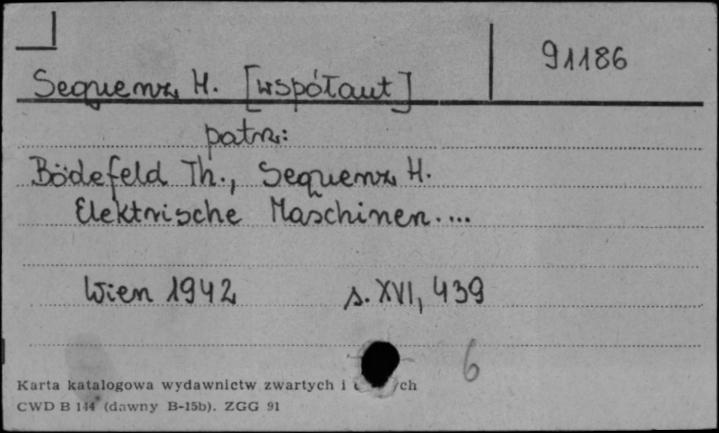 91186
Sequenz H. [współaut]
patrz:
Bödefeld Th., Sequenz H.
Elektrische Maschinen....
Wien 1942 s. XVI, 439
6
Karta katalogowa wydawnictw zwartych i
CWD B 144 (dawny B-15b). ZGG 91